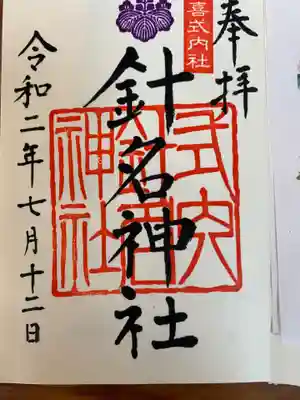 奉拝
喜式内社
針名神社
式内
神社
令和二年七月十二日